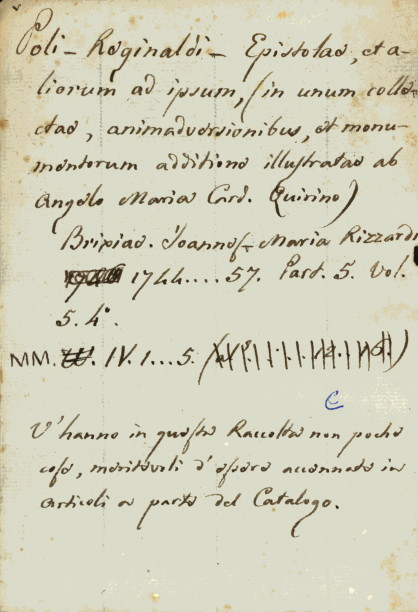 Poli - Reginaldi - Epistolae, et a-
liorum ad ipsum, (in unum colle-
ctae, animadversionibus, et monu-
mentorum additione illustratae ab
Angelo Maria Card. Quirino)
Brixiae. Joannes-Maria Rizzardi
1744....57. Part. 5. Vol.
5. 4°.
MM. IV. 1...5.
C
V'hanno in questa Raccolta non poche
cose, meritevoli d'essere accennate in
articoli a parte del Catalogo.